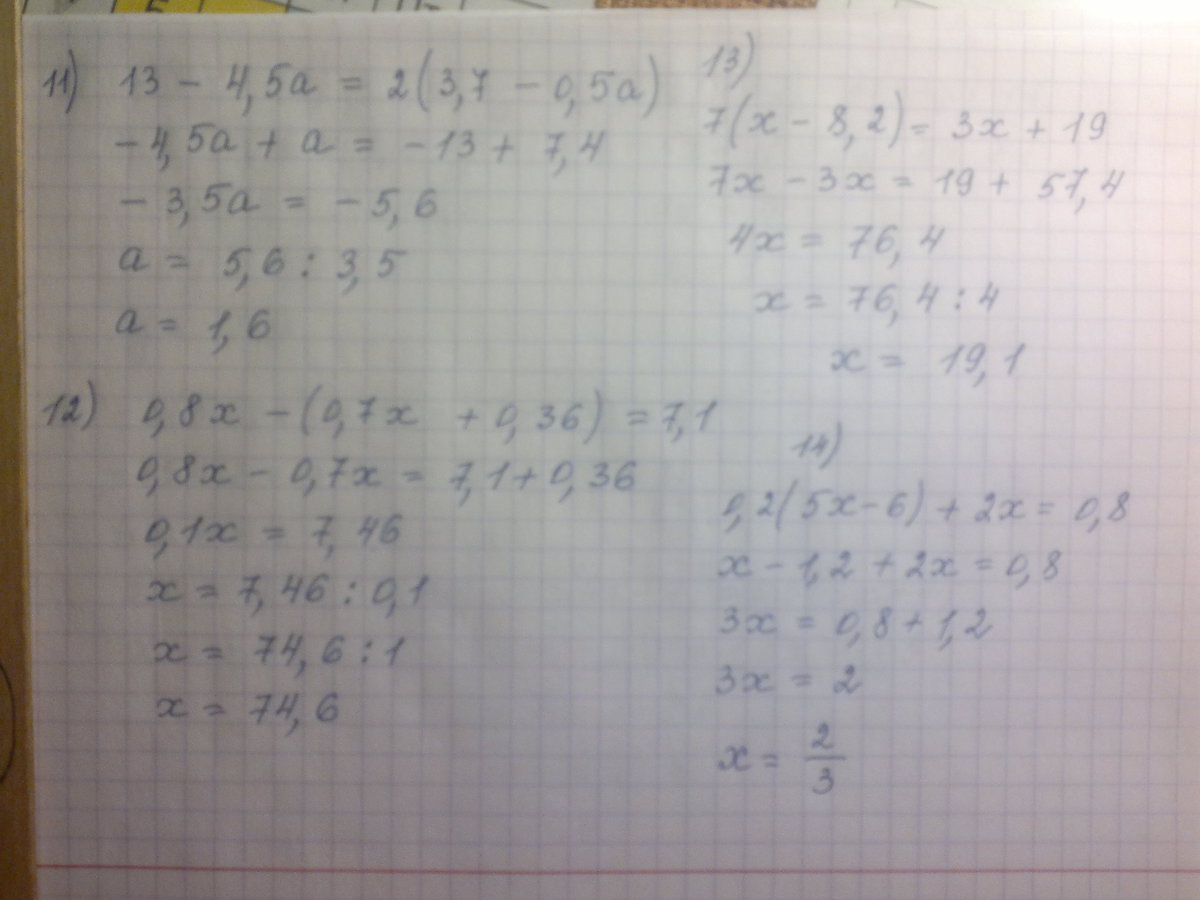 11) 13 - 4,5a = 2(3,7 - 0,5a)
-4,5a + a = -13 + 7,4
-3,5a = -5,6
a = 5,6 : 3,5
a = 1,6
12) 0,8x - (0,7x + 0,36) = 7,1
0,8x - 0,7x = 7,1 + 0,36
0,1x = 7,46
x = 7,46 : 0,1
x = 74,6 : 1
x = 74,6
13)
7(x - 8,2) = 3x + 19
7x - 3x = 19 + 57,4
4x = 76,4
x = 76,4 : 4
x = 19,1
14)
0,2(5x - 6) + 2x = 0,8
x - 1,2 + 2x = 0,8
3x = 0,8 + 1,2
3x = 2
x = 2/3